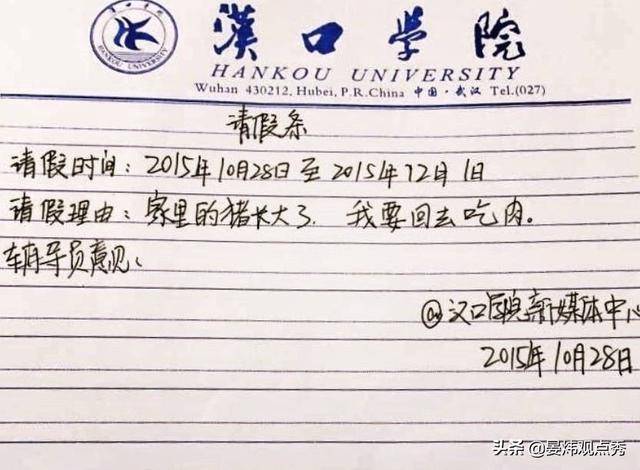 漢口學院
HANKOU UNIVERSITY
HANKOU UNIVERSITY
Wuhan 430212, Hubei, P.R.China 中国·武汉 Tel.(027)
请假条
请假时间：2015年10月28日至2015年12月1日
请假理由：家里的猪长大了，我要回去吃肉。
辅导员意见：
@汉口学院新媒体中心
2015年10月28日
头条@晏炜观点秀